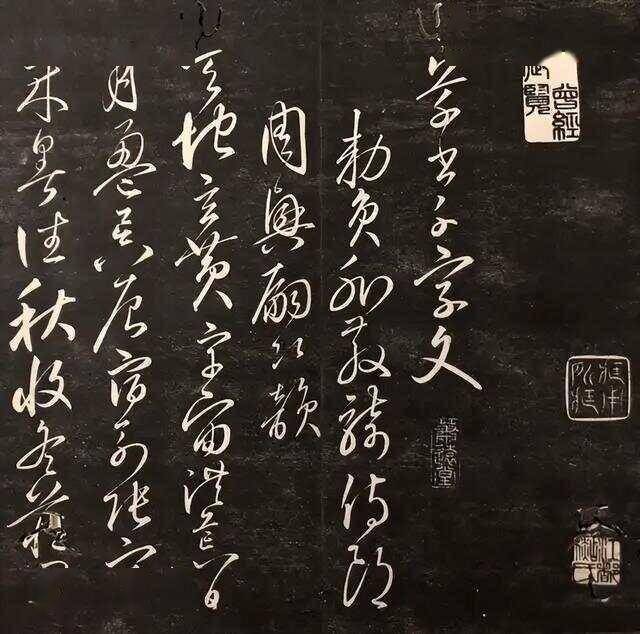 曾經
御覽
草書千字文
勅員外散騎侍郎
周興嗣次韻
天地玄黃宇宙洪荒日
月盈昃辰宿列張寒
来暑往秋收冬藏